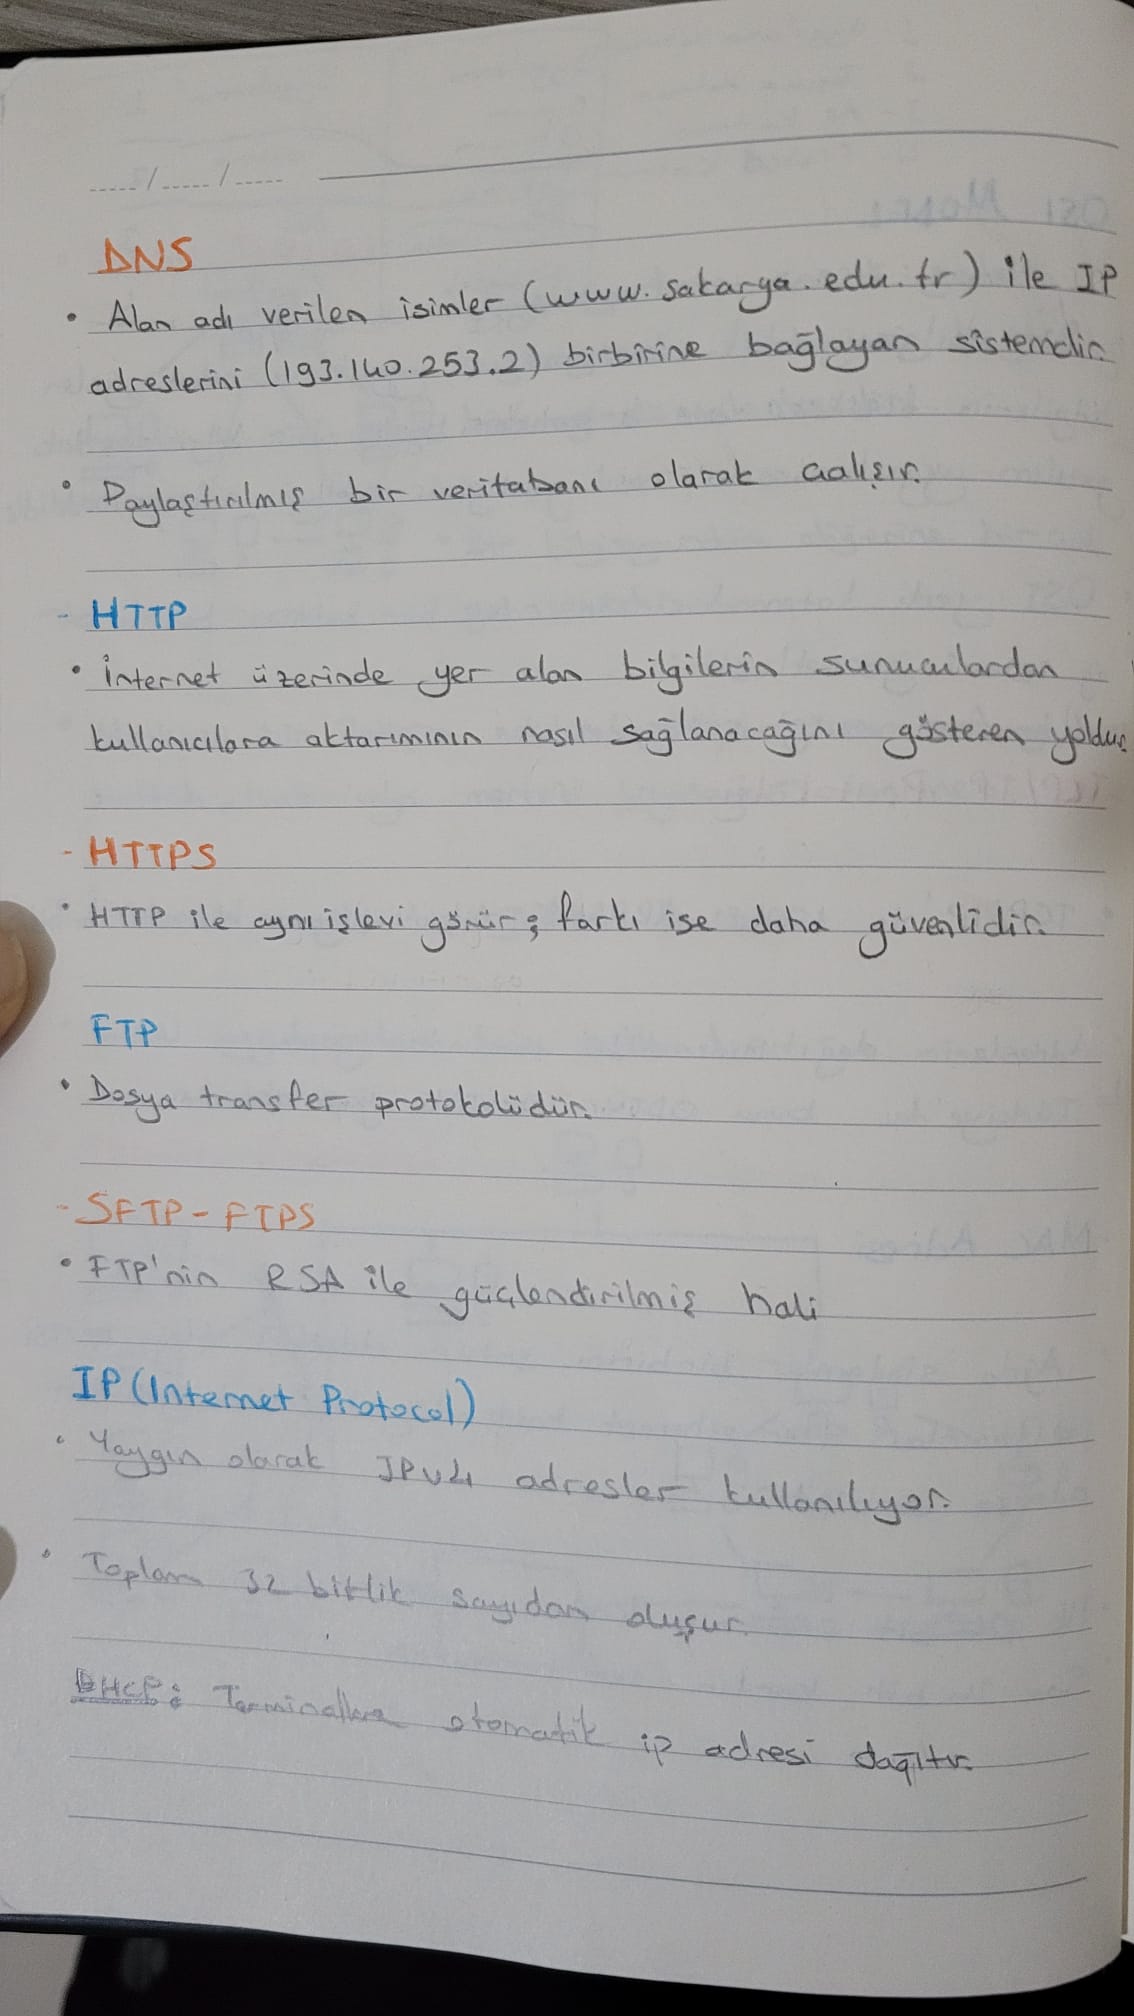 ...../...../.....
DNS
• Alan adı verilen isimler (www.sakarya.edu.tr) ile IP
adreslerini (193.140.253.2) birbirine bağlayan sistemdir.
• Paylaştırılmış bir veritabanı olarak çalışır.
- HTTP
• İnternet üzerinde yer alan bilgilerin sunuculardan
kullanıcılara aktarımının nasıl sağlanacağını gösteren yoldur.
- HTTPS
• HTTP ile aynı işlevi görür; farkı ise daha güvenlidir.
FTP
• Dosya transfer protokolüdür.
- SFTP - FTPS
• FTP'nin RSA ile güçlendirilmiş hali
IP (Internet Protocol)
• Yaygın olarak IPv4 adresler kullanılıyor.
• Toplam 32 bitlik sayıdan oluşur.
DHCP: Terminallere otomatik ip adresi dağıtır.